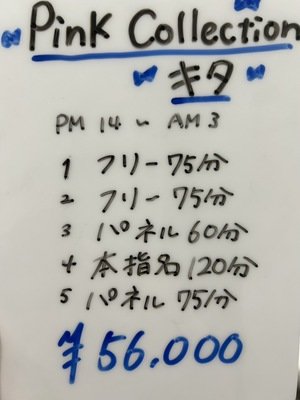 Pink Collection
キタ
PM 14 ～ AM 3
1 フリー 75分
2 フリー 75分
3 パネル 60分
4 本指名 120分
5 パネル 75分
¥56.000